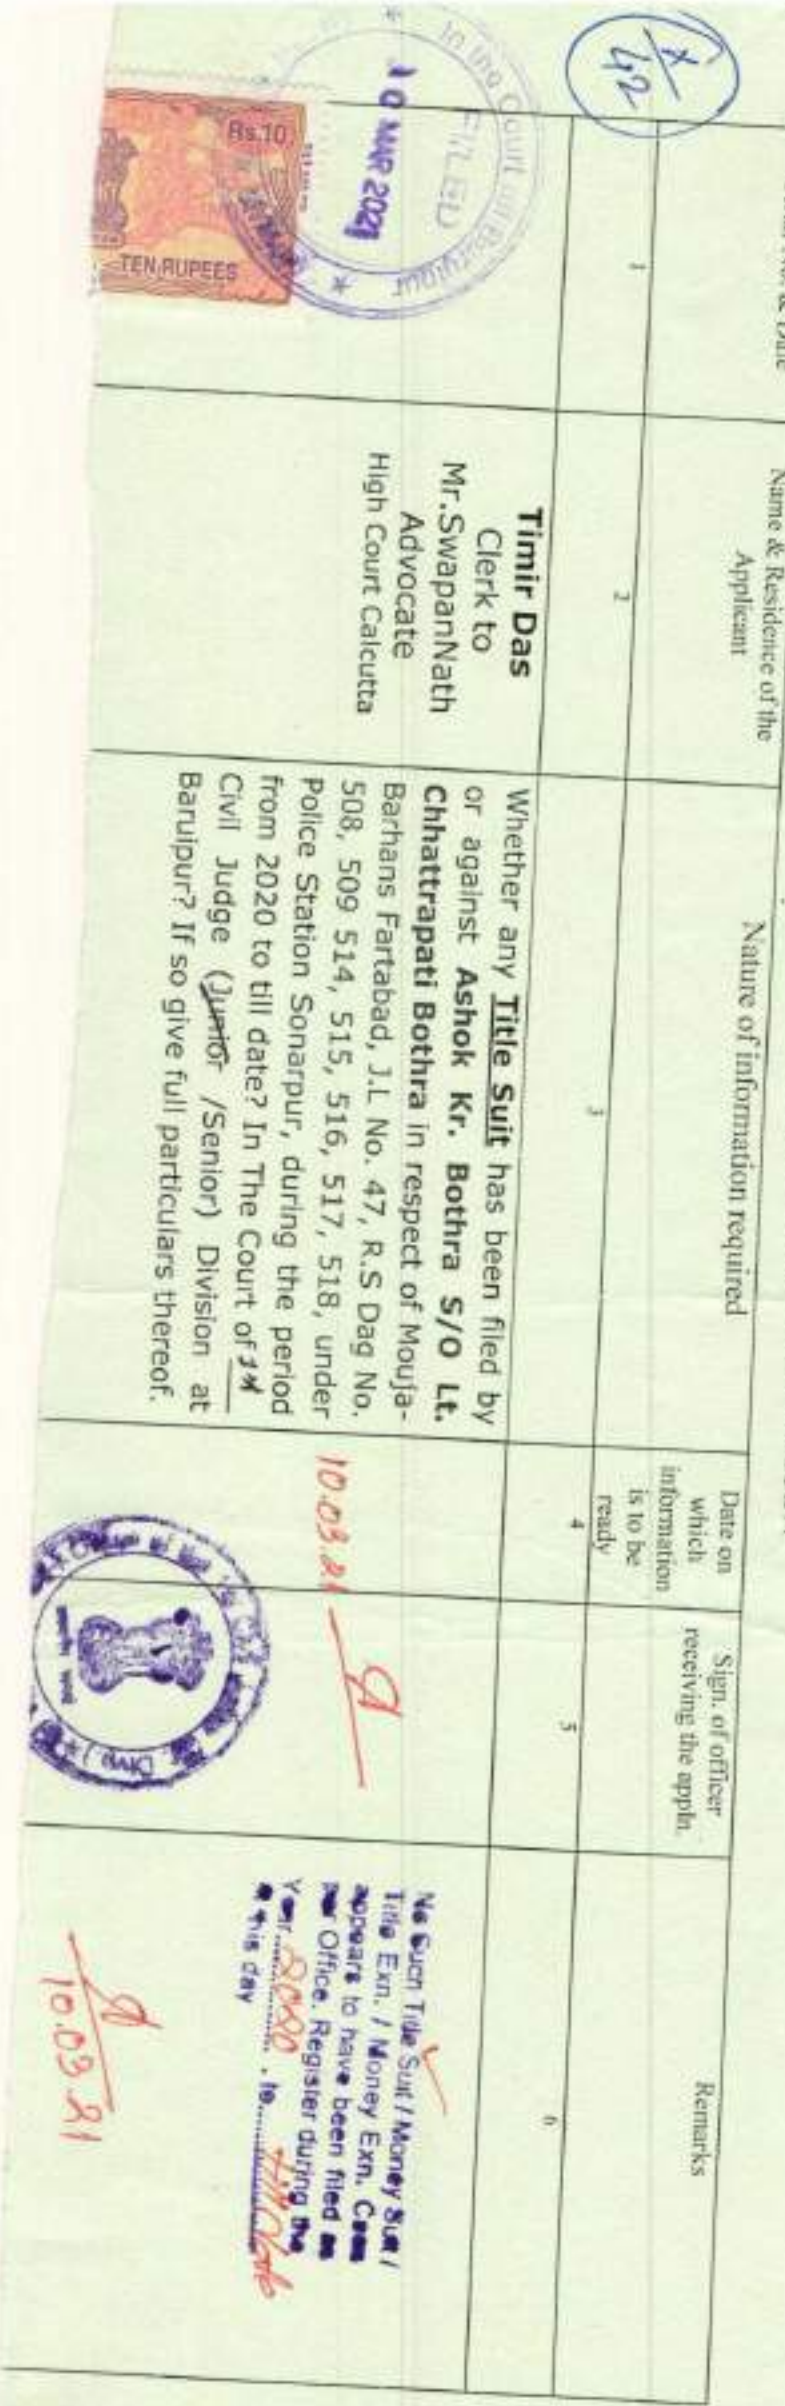 X
42
No. & Date
Name & Residence of the
Applicant
Nature of information required
Date on
which
information
is to be
ready
Sign. of officer
receiving the appln.
Remarks
1
2
3
4
5
6
In the Court of Baruipur
FILED
10 MAR 2021
Rs.10
TEN RUPEES
Timir Das
Clerk to
Mr.SwapanNath
Advocate
High Court Calcutta
Whether any Title Suit has been filed by
or against Ashok Kr. Bothra S/O Lt.
Chhattrapati Bothra in respect of Mouja-
Barhans Fartabad, J.L No. 47, R.S Dag No.
508, 509 514, 515, 516, 517, 518, under
Police Station Sonarpur, during the period
from 2020 to till date? In The Court of 1st
Civil Judge (Junior /Senior) Division at
Baruipur? If so give full particulars thereof.
10.03.21
No Such Title Suit / Money Suit /
Title Exn. / Money Exn. Case
appears to have been filed as
per Office. Register during the
Year 2020 , to till date
this day
10.03.21